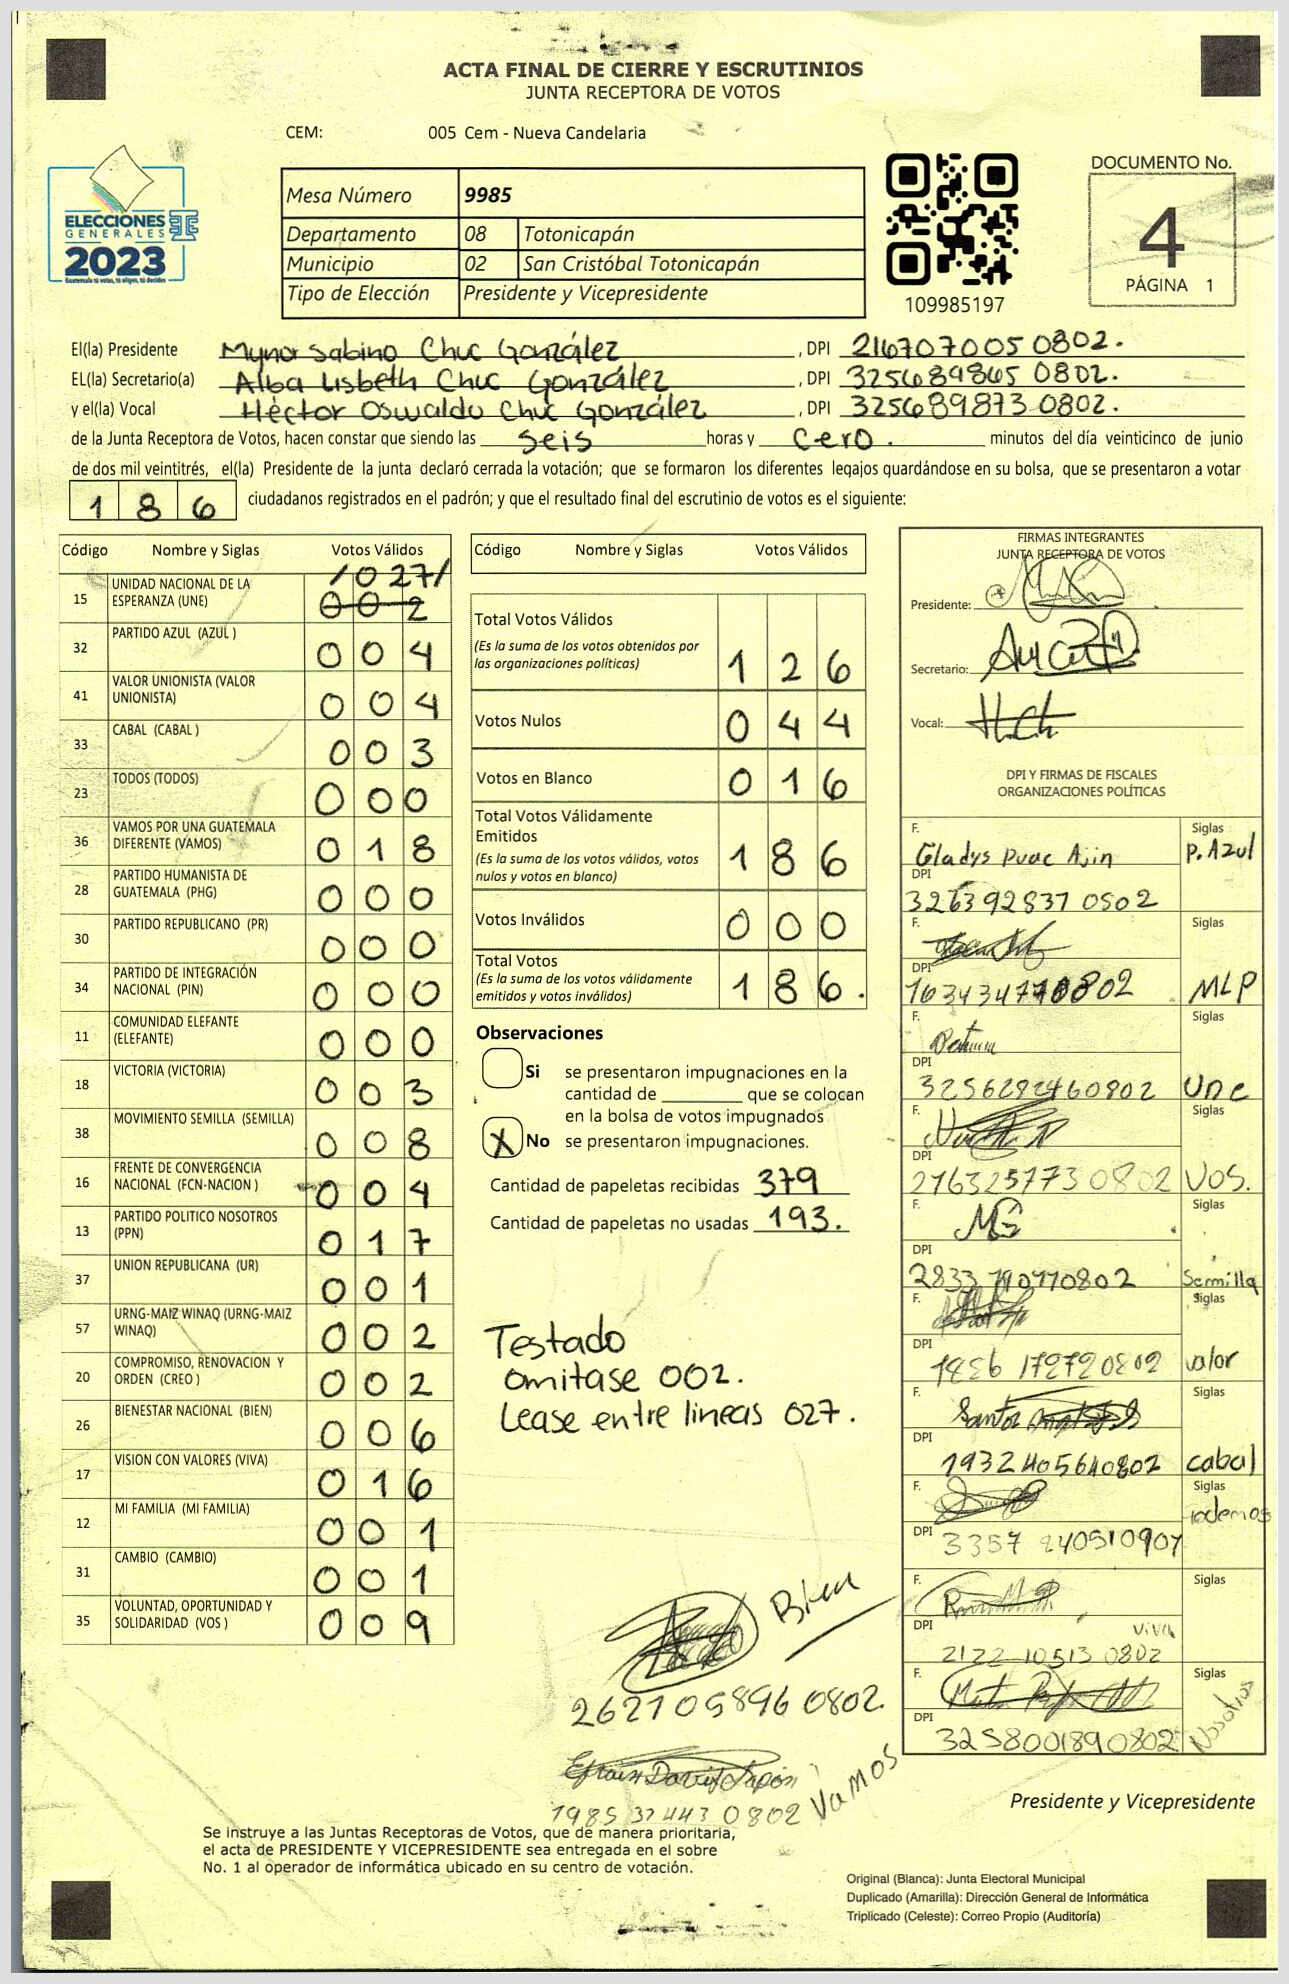 ACTA FINAL DE CIERRE Y ESCRUTINIOS
JUNTA RECEPTORA DE VOTOS
CEM: 005 Cem - Nueva Candelaria
ELECCIONES
GENERALES
2023
Guatemala tú votas, tú eliges, tú decides
Mesa Número 9985
Departamento 08 Totonicapán
Municipio 02 San Cristóbal Totonicapán
Tipo de Elección Presidente y Vicepresidente
109985197
DOCUMENTO No.
4
PÁGINA 1
El(la) Presidente Mynor Sabino Chuc González , DPI 216707005 0802.
EL(la) Secretario(a) Alba Lisbeth Chuc González , DPI 325689865 0802.
y el(la) Vocal Héctor Oswaldo Chuc González , DPI 325689873 0802.
de la Junta Receptora de Votos, hacen constar que siendo las seis horas y cero. minutos del día veinticinco de junio
de dos mil veintitrés, el(la) Presidente de la junta declaró cerrada la votación; que se formaron los diferentes legajos quardándose en su bolsa, que se presentaron a votar
1 8 6 ciudadanos registrados en el padrón; y que el resultado final del escrutinio de votos es el siguiente:
Código Nombre y Siglas Votos Válidos
/027/
15 UNIDAD NACIONAL DE LA ESPERANZA (UNE) 0 0 2
32 PARTIDO AZUL (AZUL ) 0 0 4
41 VALOR UNIONISTA (VALOR UNIONISTA) 0 0 4
33 CABAL (CABAL ) 0 0 3
23 TODOS (TODOS) 0 0 0
36 VAMOS POR UNA GUATEMALA DIFERENTE (VAMOS) 0 1 8
28 PARTIDO HUMANISTA DE GUATEMALA (PHG) 0 0 0
30 PARTIDO REPUBLICANO (PR) 0 0 0
34 PARTIDO DE INTEGRACIÓN NACIONAL (PIN) 0 0 0
11 COMUNIDAD ELEFANTE (ELEFANTE) 0 0 0
18 VICTORIA (VICTORIA) 0 0 3
38 MOVIMIENTO SEMILLA (SEMILLA) 0 0 8
16 FRENTE DE CONVERGENCIA NACIONAL (FCN-NACION ) 0 0 4
13 PARTIDO POLITICO NOSOTROS (PPN) 0 1 7
37 UNION REPUBLICANA (UR) 0 0 1
57 URNG-MAIZ WINAQ (URNG-MAIZ WINAQ) 0 0 2
20 COMPROMISO, RENOVACION Y ORDEN (CREO ) 0 0 2
26 BIENESTAR NACIONAL (BIEN) 0 0 6
17 VISION CON VALORES (VIVA) 0 1 6
12 MI FAMILIA (MI FAMILIA) 0 0 1
31 CAMBIO (CAMBIO) 0 0 1
35 VOLUNTAD, OPORTUNIDAD Y SOLIDARIDAD (VOS ) 0 0 9
Código Nombre y Siglas Votos Válidos
Total Votos Válidos
(Es la suma de los votos obtenidos por
las organizaciones políticas) 1 2 6
Votos Nulos 0 4 4
Votos en Blanco 0 1 6
Total Votos Válidamente
Emitidos
(Es la suma de los votos válidos, votos
nulos y votos en blanco) 1 8 6
Votos Inválidos 0 0 0
Total Votos
(Es la suma de los votos válidamente
emitidos y votos inválidos) 1 8 6.
Observaciones
Si se presentaron impugnaciones en la
cantidad de ________ que se colocan
en la bolsa de votos impugnados
X No se presentaron impugnaciones.
Cantidad de papeletas recibidas 379
Cantidad de papeletas no usadas 193.
Testado
omitase 002.
Lease entre lineas 027.
Bien
2627105896 0802.
Efrain David
1985 37443 0802 Vamos
FIRMAS INTEGRANTES
JUNTA RECEPTORA DE VOTOS
Presidente:
Secretario:
Vocal:
DPI Y FIRMAS DE FISCALES
ORGANIZACIONES POLÍTICAS
F. Siglas
Gladys Puac Ajin P. Azul
DPI
326392837 0802
F. Siglas
DPI
MLP
F. Siglas
DPI
3256282460802 Une
F. Siglas
DPI
216325773 0802 VOS.
F. Siglas
DPI
Semilla
F. Siglas
DPI
1886 172720802 valor
F. Siglas
Santos
DPI
1932405640802 cabal
F. Siglas
Todemos
DPI
3357 240510907
F. Siglas
DPI VIVA
2122 10513 0802
F. Siglas
DPI
3258001890802 Nosotros
Presidente y Vicepresidente
Se instruye a las Juntas Receptoras de Votos, que de manera prioritaria,
el acta de PRESIDENTE Y VICEPRESIDENTE sea entregada en el sobre
No. 1 al operador de informática ubicado en su centro de votación.
Original (Blanca): Junta Electoral Municipal
Duplicado (Amarilla): Dirección General de Informática
Triplicado (Celeste): Correo Propio (Auditoría)